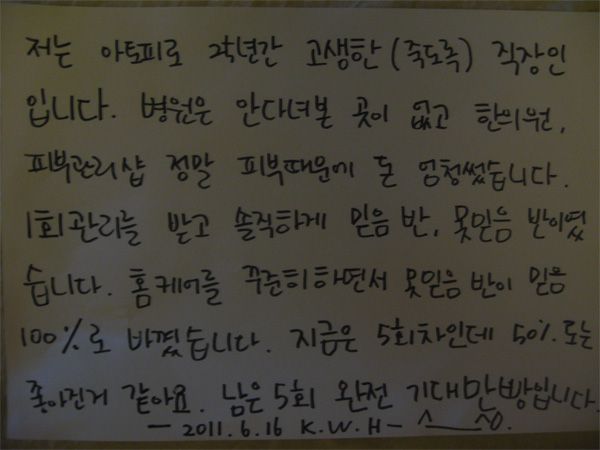 저는 아토피로 2학년간 고생한 (죽도록) 직장인
입니다. 병원은 안다녀본 곳이 없고 한의원,
피부관리샵 정말 피부때문에 돈 엄청썼습니다.
1회관리를 받고 솔직하게 믿음 반, 못믿음 반이였
습니다. 홈케어를 꾸준히하면서 못믿음 반이 믿음
100%로 바꼈습니다. 지금은 5회차인데 50% 도는
좋아진거 같아요. 남은 5회 완전 기대만빵입니다.
- 2011.6.16 K.W.H -